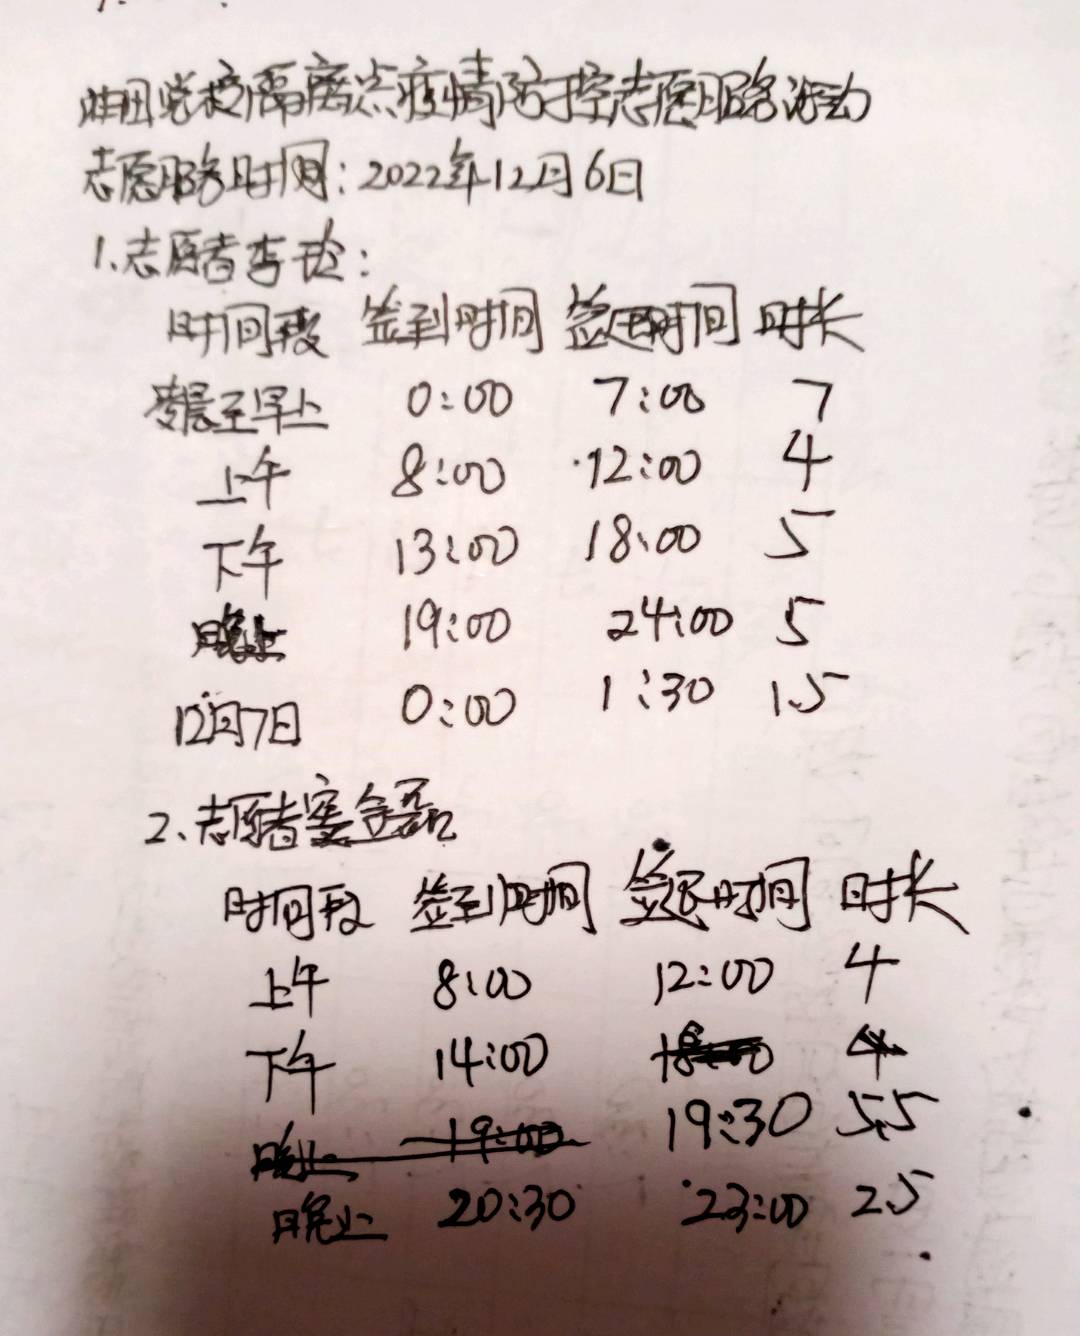 党校隔离点疫情防控志愿服务活动
志愿服务时间：2022年12月6日
1.志愿者李玲：
时间段 签到时间 签退时间 时长
凌晨至早上 0:00 7:00 7
上午 8:00 12:00 4
下午 13:00 18:00 5
晚上 19:00 24:00 5
12月7日 0:00 1:30 1.5
2、志愿者金磊
时间段 签到时间 签退时间 时长
上午 8:00 12:00 4
下午 14:00 18:00 4
19:30 5.5
晚上 19:00
晚上 20:30 23:00 2.5